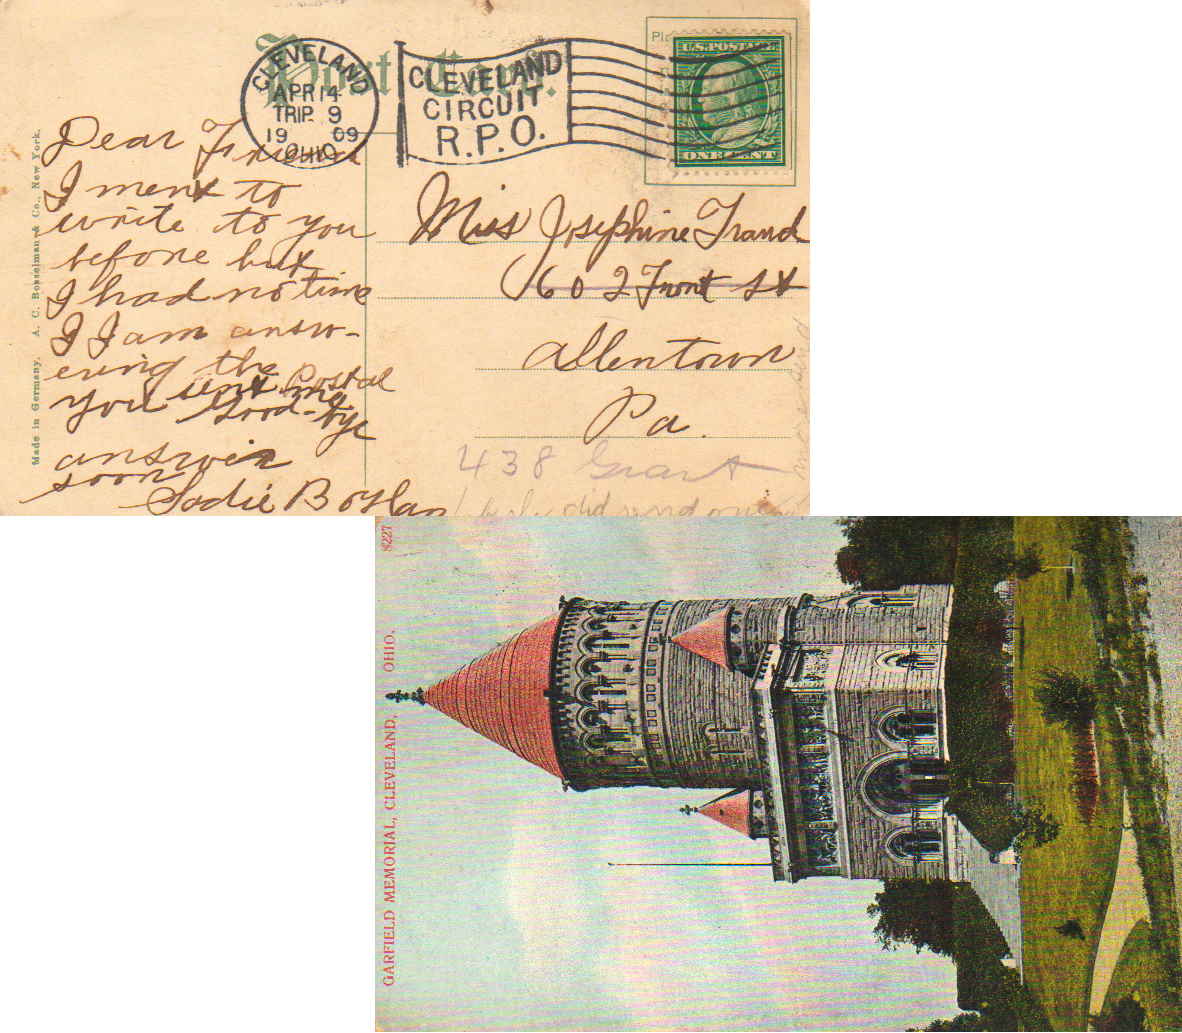 Post Card.
CLEVELAND
APR 14
TRIP 9
19 09
OHIO
CLEVELAND
CIRCUIT
R.P.O.
U.S. POSTAGE
ONE CENT
Made in Germany. A. C. Bosselman & Co., New York.
Dear Friend
I ment to
write to you
before but
I had no time
I I am answ-
ering the
Postal
you sent me
Good-bye
answer
soon
Sadie Boylan
Miss Josephine Trand
602 Front St
Allentown
Pa.
438 Grant
did send
8227
GARFIELD MEMORIAL, CLEVELAND, OHIO.